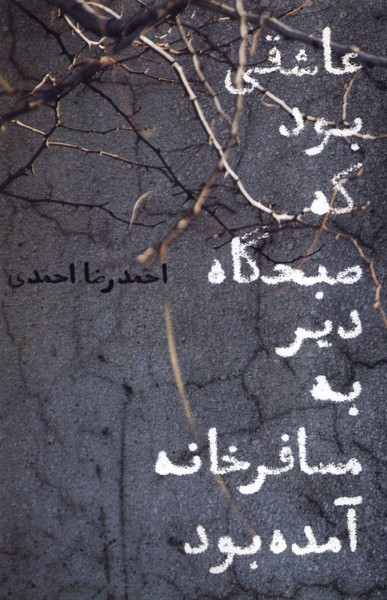 عاشقی
بود
که
صبحگاه
احمدرضا احمدی
دیر
به
مسافرخانه
آمده بود